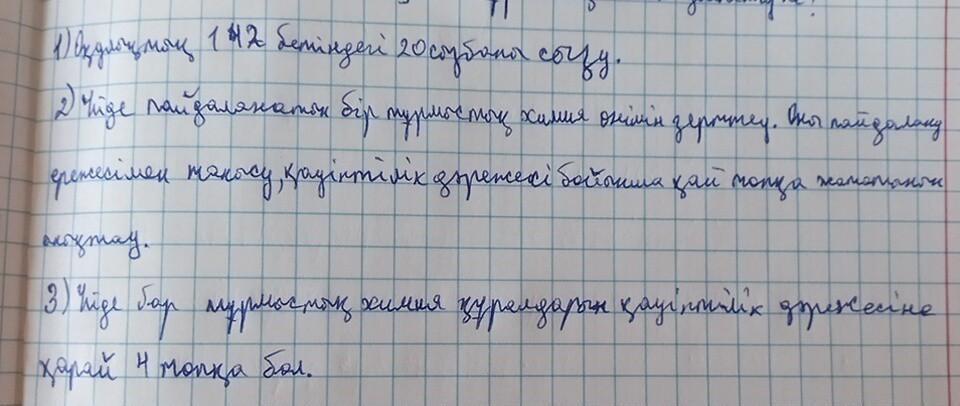 1) Оқулықтың 142 бетіндегі 20 сызбаны сызу.
2) Үйде пайдаланатын бір тұрмыстық химия өнімін зерттеу. Оны пайдалану
ережесімен танысу, қауіптілік дәрежесі бойынша қай топқа жататынын
анықтау.
3) Үйде бар тұрмыстық химия құралдарын қауіптілік дәрежесіне
қарай 4 топқа бөл.